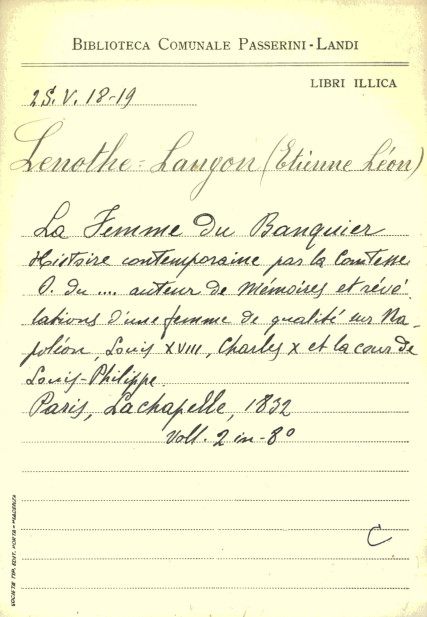 BIBLIOTECA COMUNALE PASSERINI-LANDI
LIBRI ILLICA
2S. V. 18-19
Lenothe=Langon (Etienne Léon)
La Femme du Banquier
Histoire contemporaine par la Comtesse
O. du .... auteur de Mémoires et révé
lations d'une femme de qualité sur Na-
poléon, Louis XVIII, Charles X et la cour de
Louis-Philippe.
Paris, Lachapelle, 1832
Voll. 2 in-8°
C